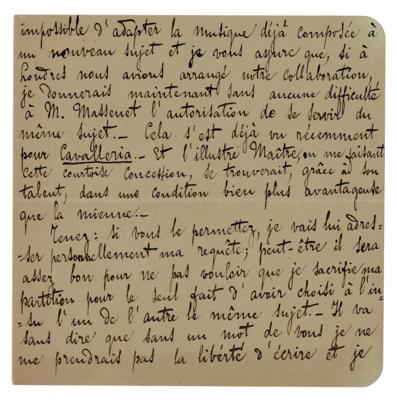 impossible d'adapter la musique déjà composée à
un nouveau sujet et je vous assure que, si à
Londres nous avions arrangé notre collaboration,
je donnerais maintenant sans aucune difficulté
à M. Massenet l'autorisation de se servir du
même sujet. — Cela s'est déjà vu récemment
pour Cavalleria. — Et l'illustre Maître, en me faisant
cette courtoise concession, se trouverait, grâce à son
talent, dans une condition bien plus avantageuse
que la mienne. —
Tenez: si vous le permettez, je vais lui adres-
-ser personnellement ma requête; peut-être il sera
assez bon pour ne pas vouloir que je sacrifie ma
partition pour le seul fait d'avoir choisi à l'in-
-su l'un de l'autre le même sujet. — Il va
sans dire que sans un mot de vous je ne
me prendrais pas la liberté d'écrire et je